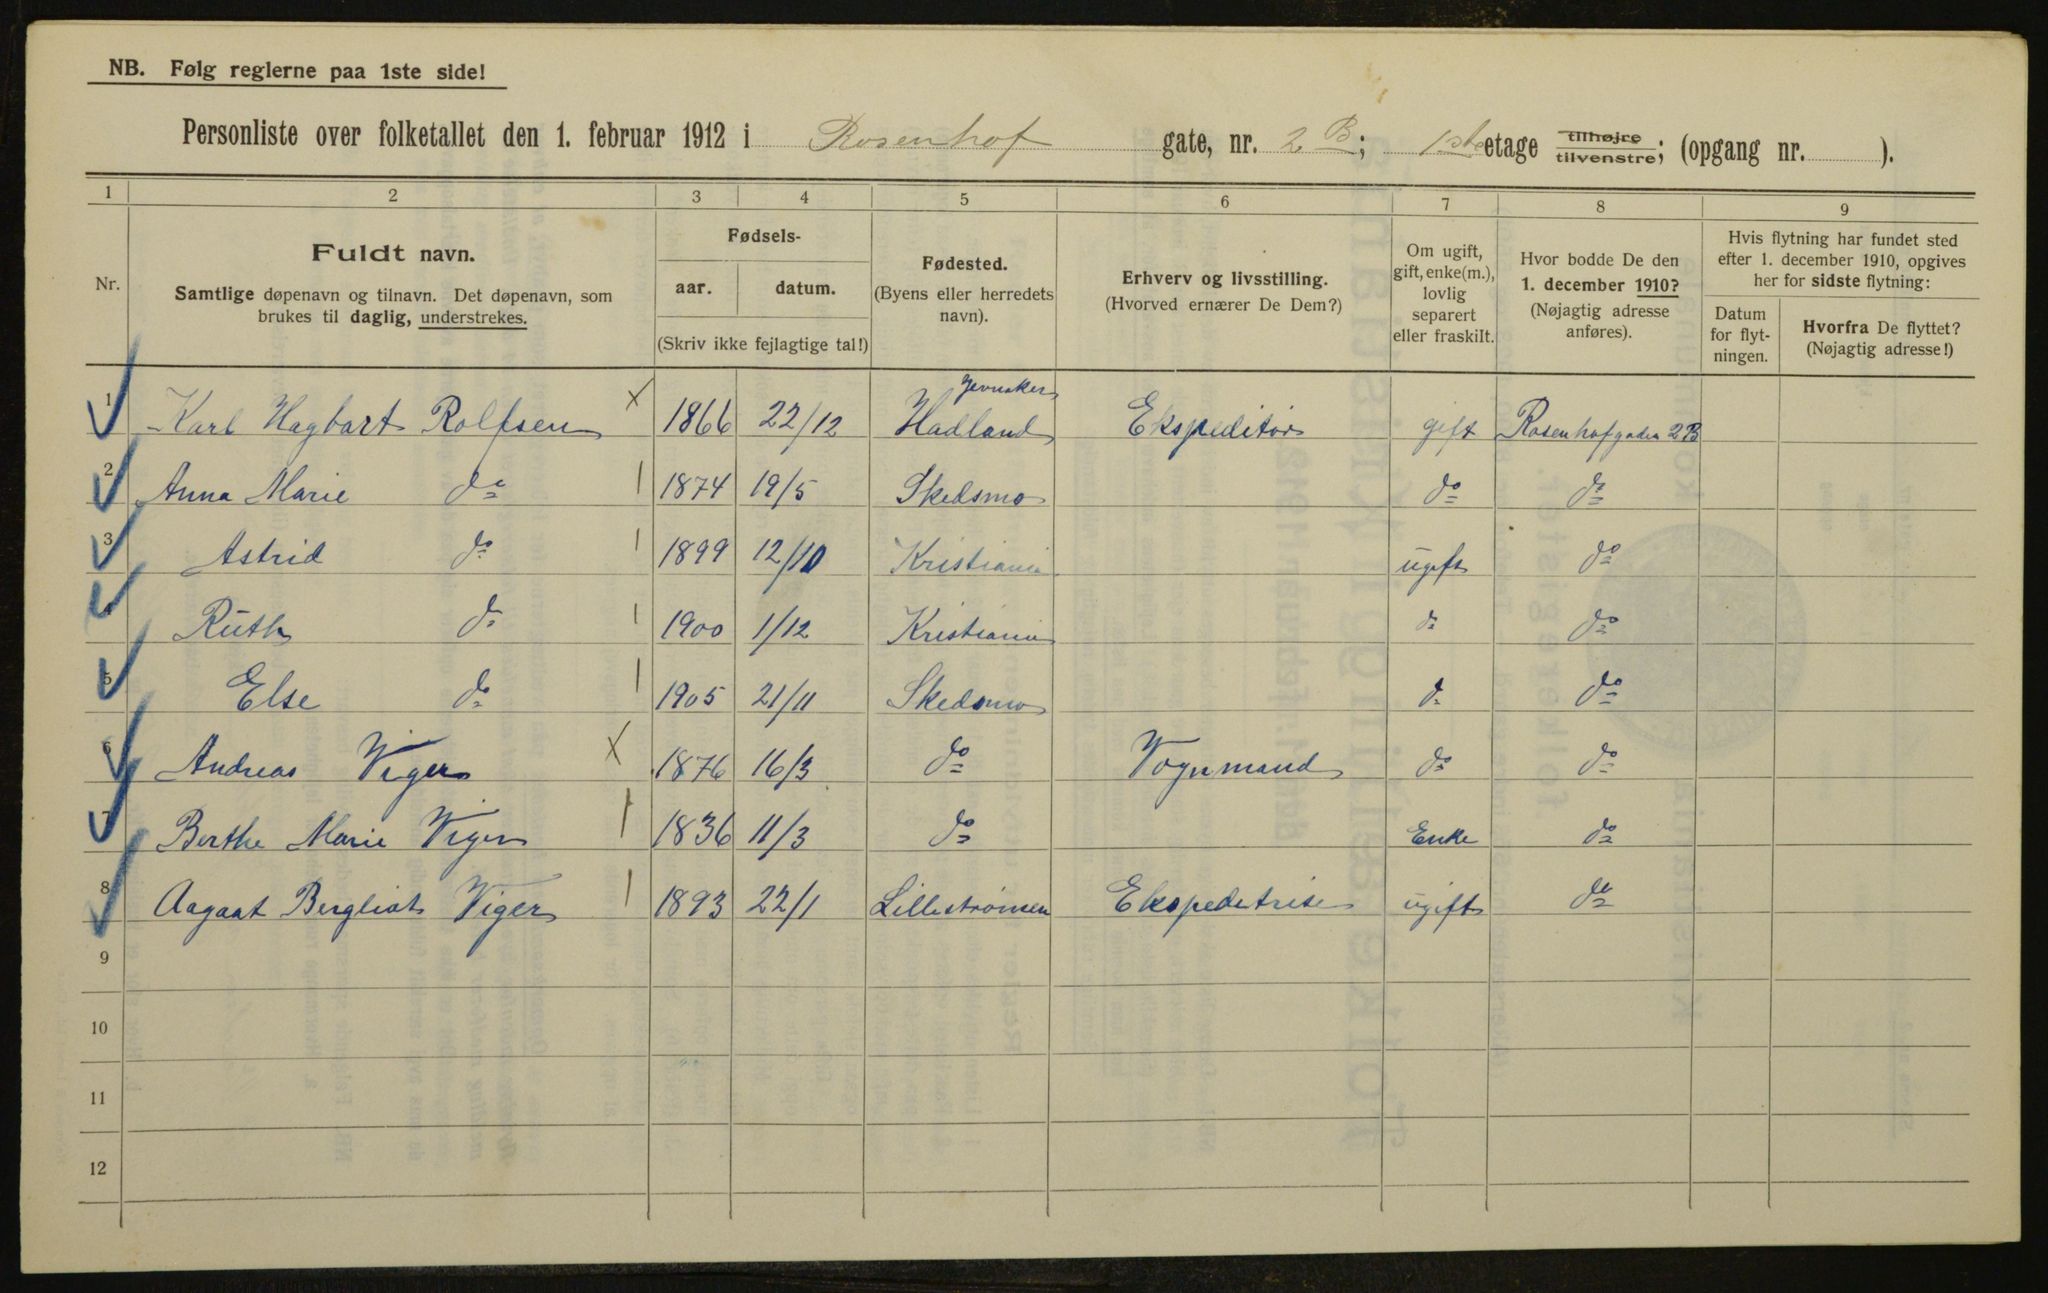 NB. Følg reglerne paa 1ste side!
Personliste over folketallet den 1. februar 1912 i Rosenhof gate, nr. 2 B; 1ste etage tilhøjre tilvenstre; (opgang nr. ).
1 2 3 4 5 6 7 8 9
Nr.
Fuldt navn.
Samtlige døpenavn og tilnavn. Det døpenavn, som
brukes til daglig, understrekes.
Fødsels-
aar. datum.
(Skriv ikke fejlagtige tal!)
Fødested.
(Byens eller herredets
navn).
Erhverv og livsstilling.
(Hvorved ernærer De Dem?)
Om ugift,
gift, enke(m.),
lovlig
separert
eller fraskilt.
Hvor bodde De den
1. december 1910?
(Nøjagtig adresse
anføres).
Hvis flytning har fundet sted
efter 1. december 1910, opgives
her for sidste flytning:
Datum
for flyt-
ningen.
Hvorfra De flyttet?
(Nøjagtig adresse!)
Jevnaker
1 Karl Hagbart Rolfsen x 1866 22/12 Hadland Ekspeditør gift Rosenhofgaden 2B
2 Anna Marie do 1 1874 19/5 Skedsmo do do
3 Astrid do 1 1899 12/10 Kristiania ugift do
4 Ruth do 1 1900 1/12 Kristiania do do
5 Else do 1 1905 21/11 Skedsmo do do
6 Andreas Viger x 1876 16/3 do Vognmand do do
7 Berthe Marie Viger 1 1836 11/3 do Enke do
8 Aagaat Bergliot Viger 1 1893 22/1 Lillestrømmen Ekspeditrise ugift do
9
10
11
12